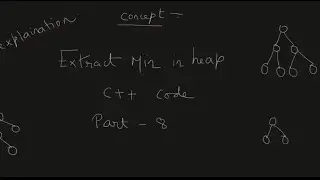 explaination
Concept :-
Extract Min in heap
C++ code
Part - 8